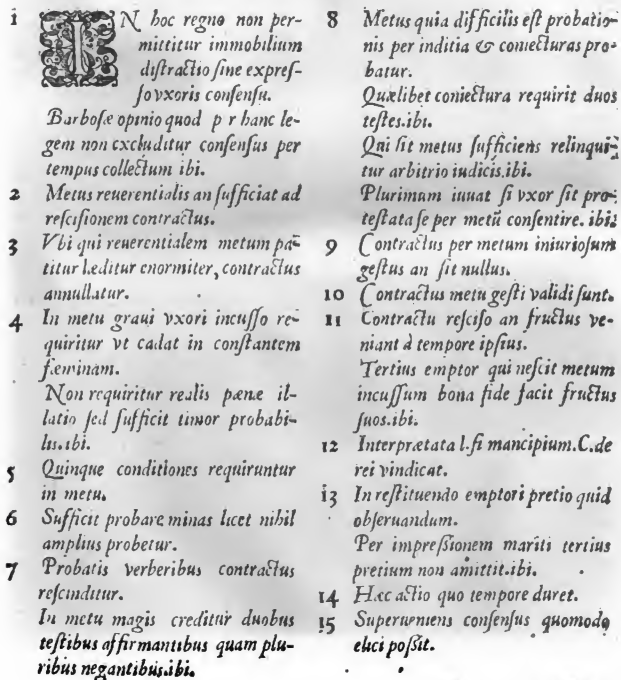 1 IN hoc regno non per-
mittitur immobilium
distractio sine expres-
so vxoris consensu.
Barbosæ opinio quod p r hanc le-
gem non excluditur consensus per
tempus collectum ibi.
2 Metus reuerentialis an sufficiat ad
rescisionem contractus.
3 Vbi qui reuerentialem metum pa-
titur læditur enormiter, contractus
annullatur.
4 In metu graui vxori incusso re-
quiritur vt cadat in constantem
fæminam.
Non requiritur realis pænæ il-
latio sed sufficit timor probabi-
lis.ibi.
5 Quinque conditiones requiruntur
in metu.
6 Sufficit probare minas licet nihil
amplius probetur.
7 Probatis verberibus contractus
rescinditur.
In metu magis creditur duobus
testibus affirmantibus quam plu-
ribus negantibus.ibi.
8 Metus quia difficilis est probatio-
nis per inditia & coniecturas pro-
batur.
Quælibet coniectura requirit duos
testes.ibi.
Qui sit metus sufficiens relinqui-
tur arbitrio iudicis.ibi.
Plurimum iuuat si vxor sit pro-
testata se per metũ consentire. ibi.
9 Contractus per metum iniuriosum
gestus an sit nullus.
10 Contractus metu gesti validi sunt.
11 Contracturesciso an fructus ve-
niant à tempore ipsius.
Tertius emptor qui nescit metum
incussum bona fide facit fructus
suos.ibi.
12 Interpretata l.si mancipium.C.de
rei vindicat.
13 In restituendo emptori pretio quid
obseruandum.
Per impressionem mariti tertius
pretium non amittit.ibi.
14 Hæc actio quo tempore duret.
15 Superueniens consensus quomodo
elici possit.